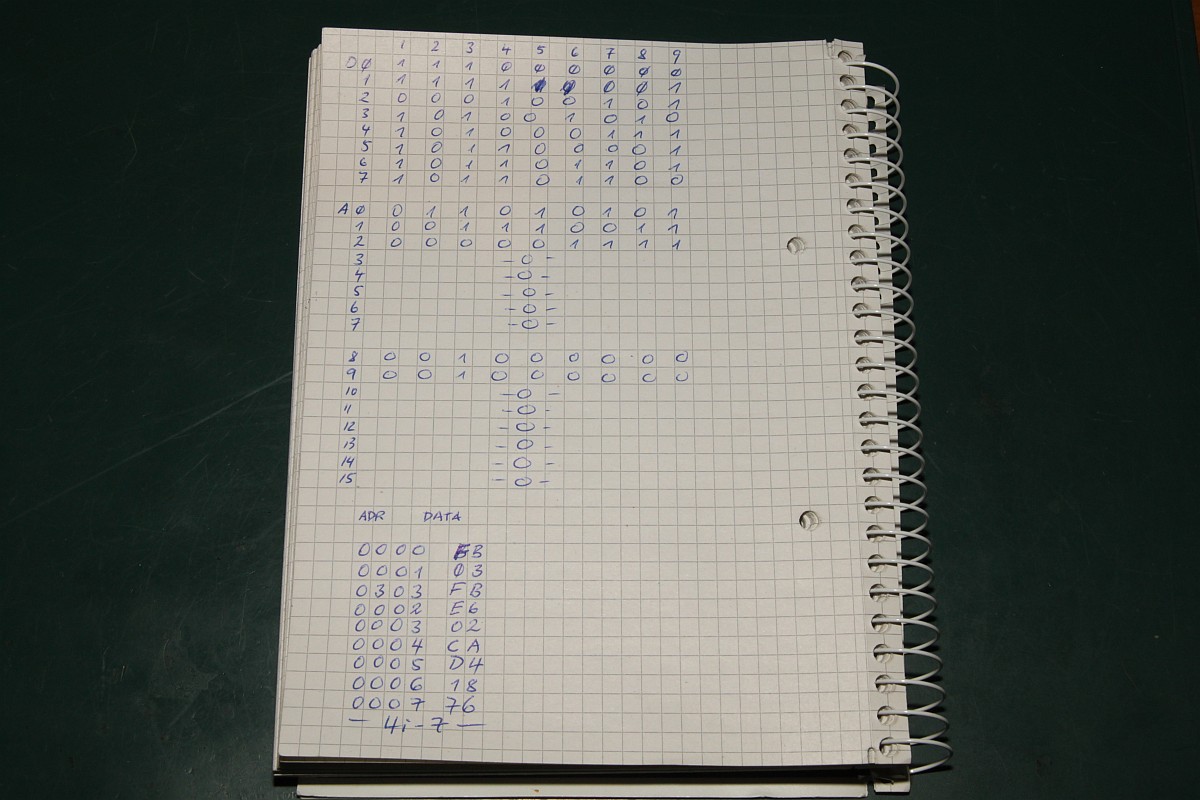 1 2 3 4 5 6 7 8 9
DØ 1 1 1 Ø Ø Ø Ø Ø Ø
1 1 1 1 1 Ø Ø 1
2 0 0 0 1 0 0 1 0 1
3 1 0 1 0 0 1 0 1 0
4 1 0 1 0 0 0 1 1 1
5 1 0 1 1 0 0 0 0 1
6 1 0 1 1 0 1 1 0 1
7 1 0 1 1 0 1 1 0 0
AØ 0 1 1 0 1 0 1 0 1
1 0 0 1 1 1 0 0 1 1
2 0 0 0 0 0 1 1 1 1
3 - 0 -
4 - 0 -
5 - 0 -
6 - 0 -
7 - 0 -
8 0 0 1 0 0 0 0 0 0
9 0 0 1 0 0 0 0 0 0
10 - 0 -
11 - 0 -
12 - 0 -
13 - 0 -
14 - 0 -
15 - 0 -
ADR DATA
0000 FB
0001 Ø3
0303 FB
0002 E6
0003 02
0004 CA
0005 D4
0006 18
0007 76
— 4i-7 —